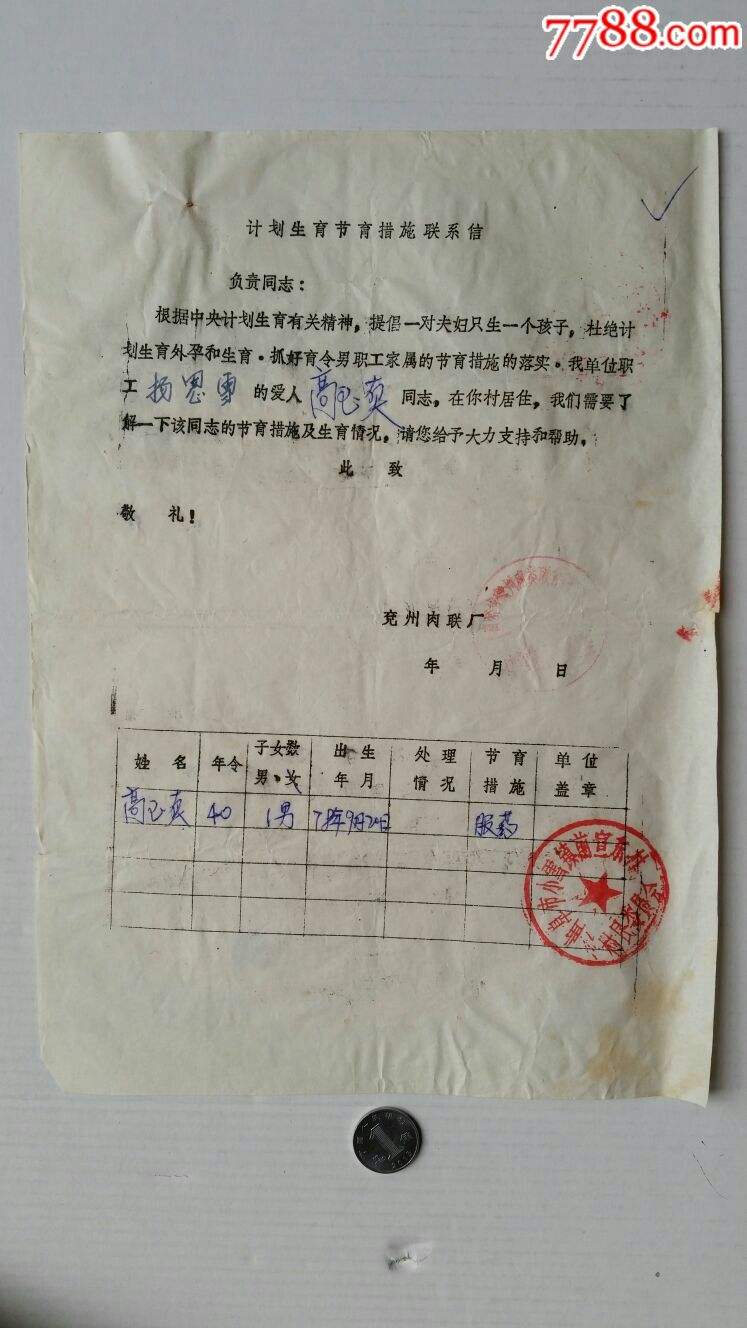 7788.com
计划生育节育措施联系信
负责同志：
根据中央计划生育有关精神，提倡一对夫妇只生一个孩子，杜绝计
划生育外孕和生育．抓好育令男职工家属的节育措施的落实．我单位职
工 杨思雪 的爱人 高玉英 同志，在你村居住，我们需要了
解一下该同志的节育措施及生育情况，请您给予大力支持和帮助。
此 致
敬 礼！
兖州肉联厂
年 月 日
姓 名 年令 子女数 男、女 出生 年月 处理 情况 节育 措施 单位 盖章
高玉英 40 1男 78年9月20日 服药
曲阜市小雪镇前宣东村
村民委员会